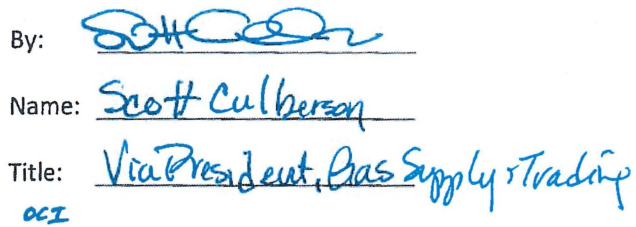 By: Scott Culberson
Name: Scott Culberson
Title: Vice President, Gas Supply & Trading
OCI